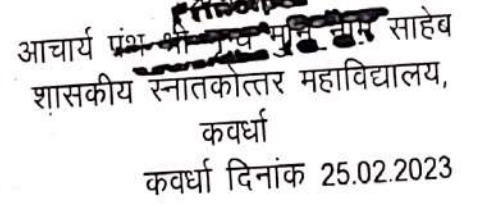 आचार्य पंथ श्री मुनि नाम साहेब
शासकीय स्नातकोत्तर महाविद्यालय,
कवर्धा
कवर्धा दिनांक 25.02.2023